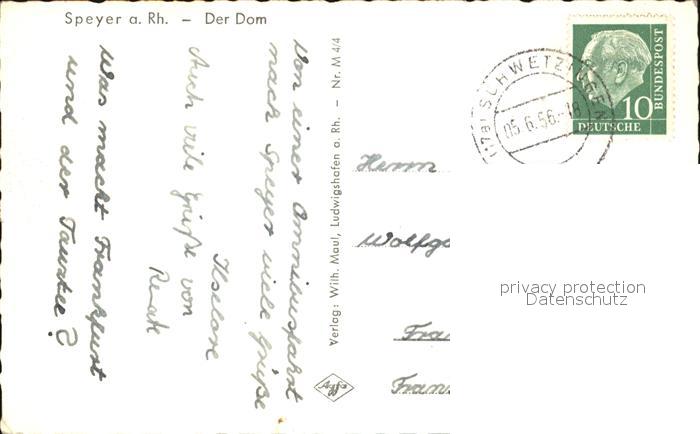 Speyer a. Rh. — Der Dom
Von einer Omnibusfahrt
nach Speyer viele Grüße
Ilselore
Auch viele Grüße von
Renate
Was macht Frankfurt
und der
Verlag: Wilh. Maul, Ludwigshafen a. Rh. — Nr. M 4/4
Agfa
(17a) SCHWETZINGEN
05.6.56.-18
10
DEUTSCHE
BUNDESPOST
Herrn
Wolfga
Fra
Fran
privacy protection
Datenschutz